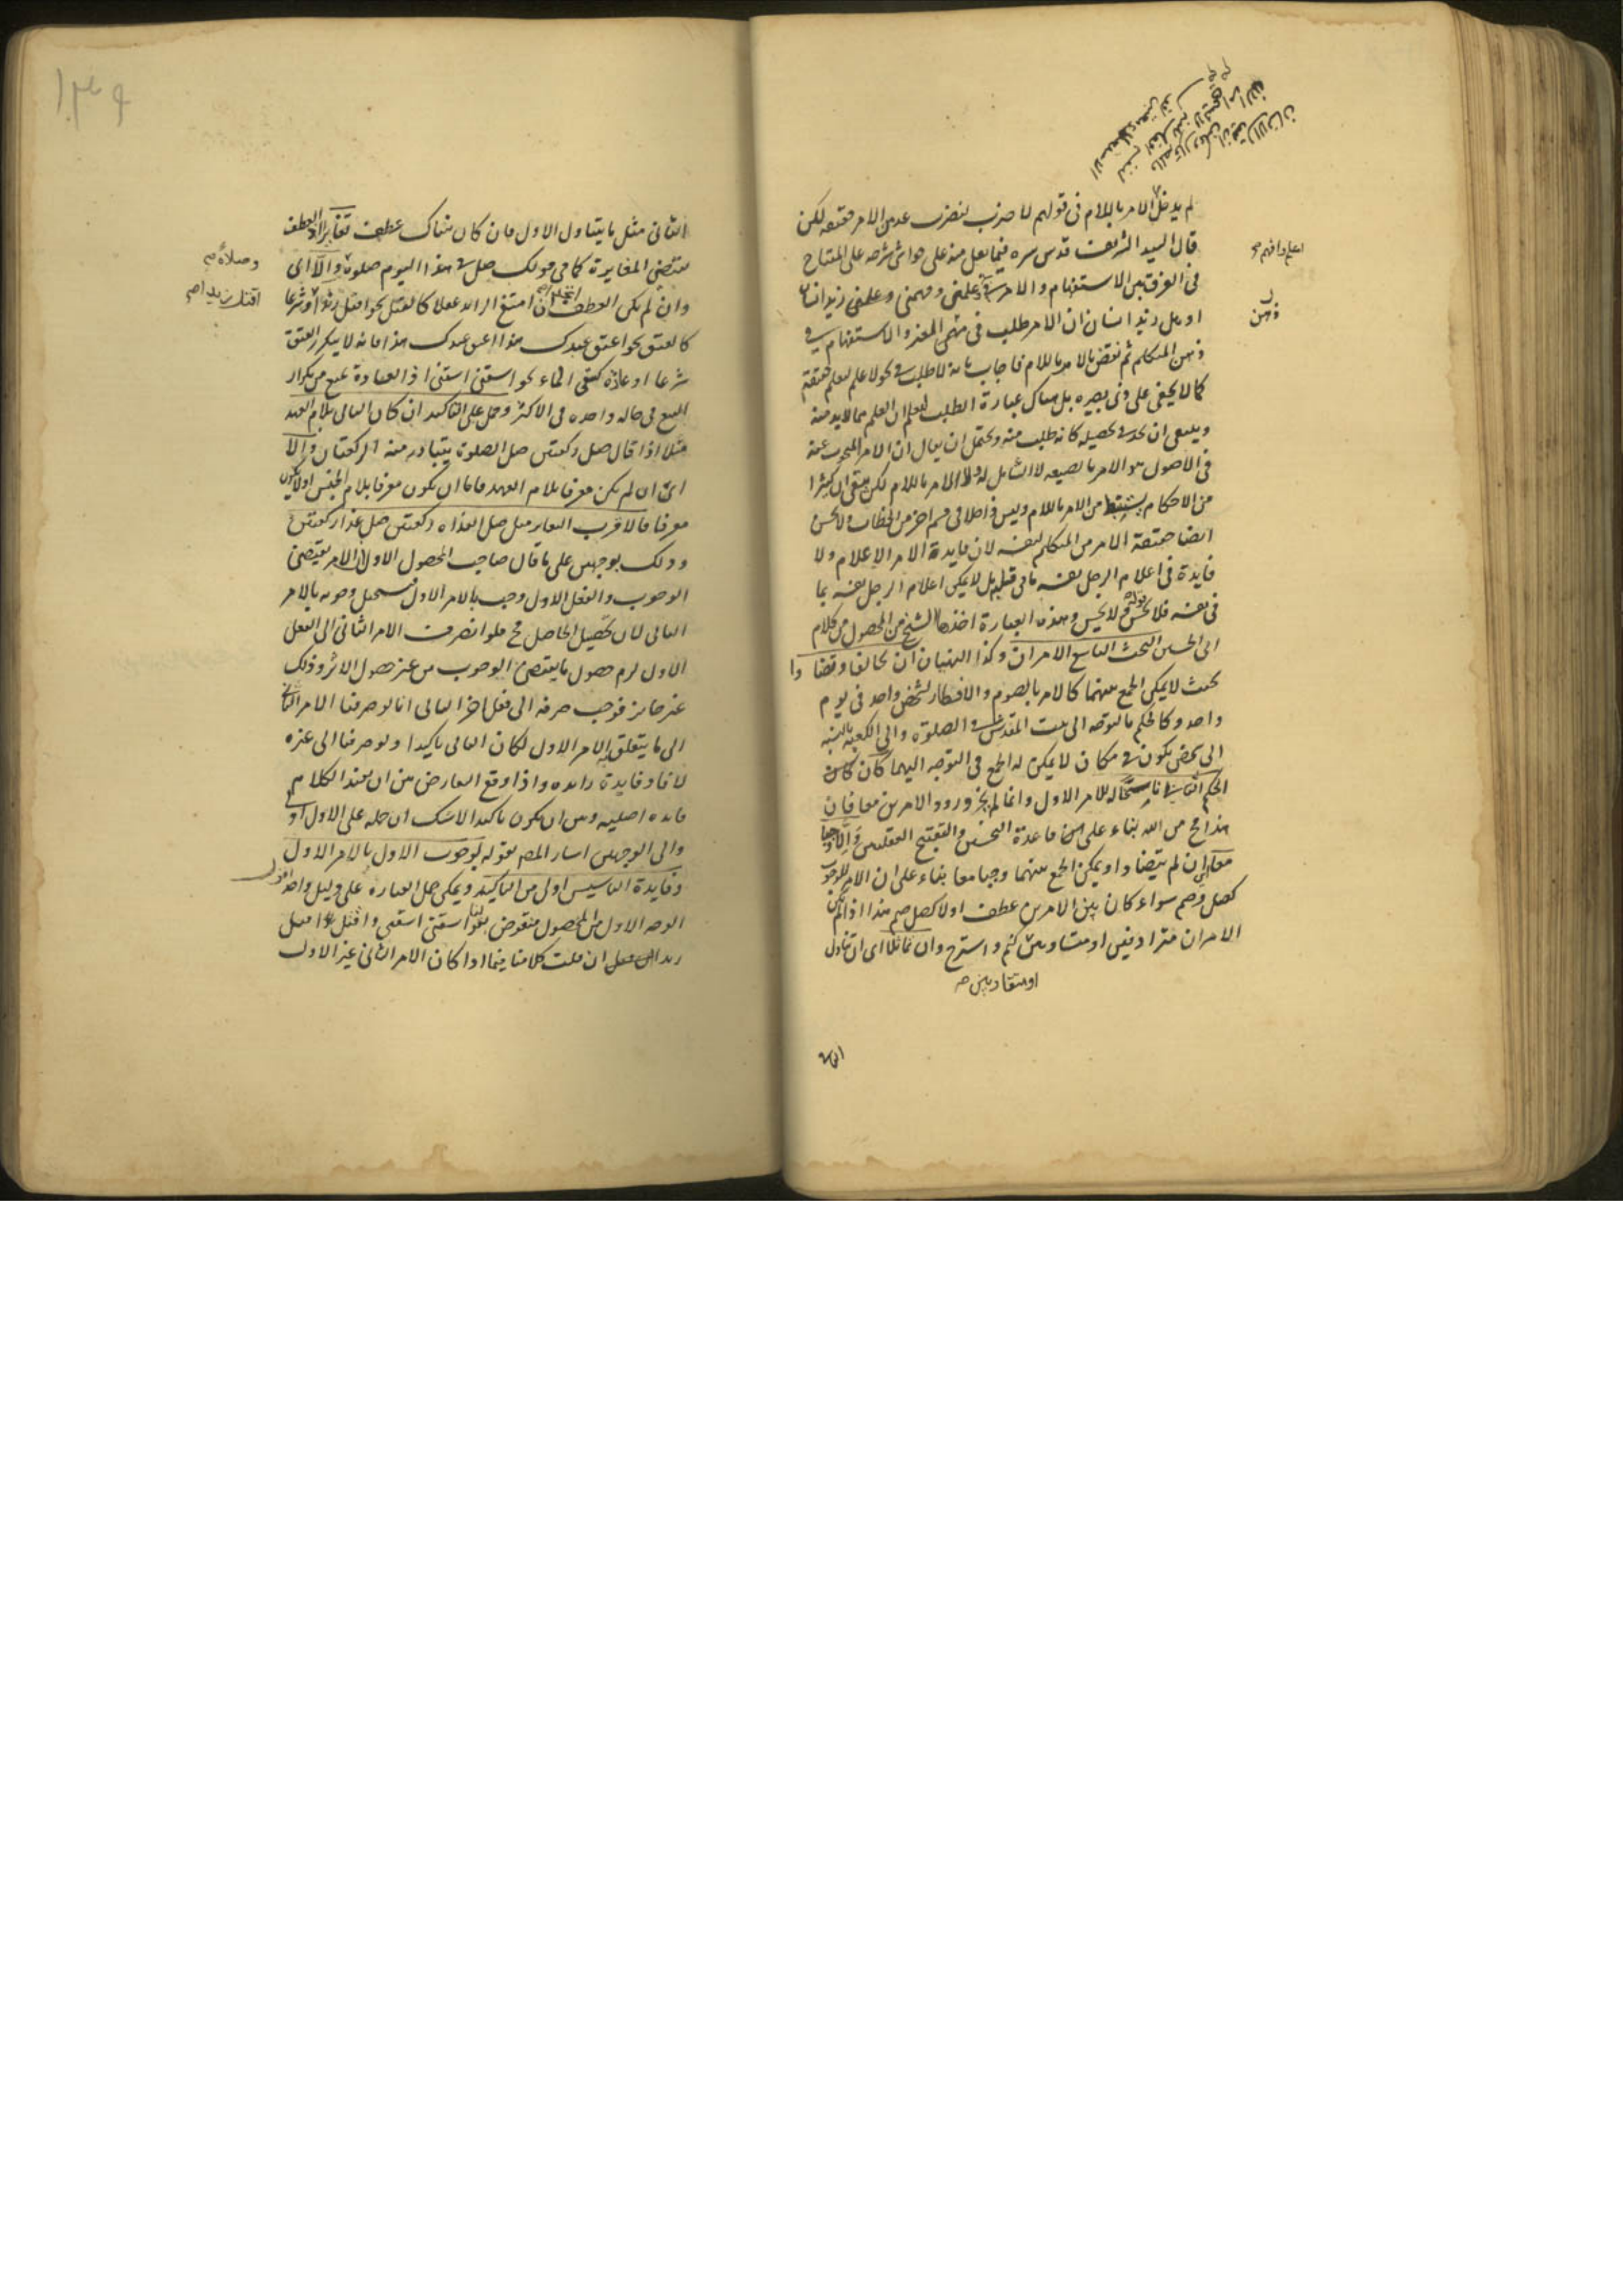 لم يدخل الامر باللام فى قولهم لا ضرب لنضرب عدمن الامر حقيقه لكن
قال السيد الشريف قدس سره فيما نقل منه على حواشى شرحه على المفتاح
فى الفرق بين الاستفهام والامر فى علمنى وفهمنى وعلمنى ازيد انسان
او هل زيد انسان ان الامر طلب فى فهمى المعنى والاستفهام فى
ذهن المتكلم ثم نقض بالامر باللام فاجاب بانه لا طلب فى نحو لاعلم لتعلم حقيقة
كما لا يخفى على ذى بصيره بل هناك عبارة الطلب ليعلم ان العلم مما لابد منه
وينبغى ان يجد فى تحصيله كانه طلب منه ويحتمل ان يقال ان الامر المبحوث عنه
فى الاصول هو الامر بالصيغه لا الشامل له وللامر باللام لكن يبقى ان كثيرا
من الاحكام يستنبط من الامر باللام وليس داخلا فى قسم اخر من الخطاب ولا يحسن
ايضا حقيقة الامر من المتكلم لنفسه لان فايدة الامر الاعلام ولا
فايدة فى اعلام الرجل نفسه ما فى قلبه بل لا يمكن اعلام الرجل نفسه بما
فى نفسه فلا يحسن قوله لا يحسن وهذه العبارة اخذها الشيخ من المحصول من كلام
ابى الحسين البحث التاسع الامران وكذا النهيان ان تخالفا وتضادا
بحيث لا يمكن الجمع بينهما كالامر بالصوم والافطار لشخص واحد فى يوم
واحد وكالحكم بالتوجه الى بيت المقدس فى الصلوة والى الكعبه بالنسبه
الى شخص يكون فى مكان لا يمكن له الجمع فى التوجه اليهما كان كان
الحكم الثانى ناسخا له للامر الاول وانما لم يجز ورود الامرين معا فان
هذا مح من الله بناء على قاعدة التحسين والتقبيح العقليين والا وجبا
معا اى ان لم يتضادا ويمكن الجمع بينهما وجبا معا بناء على ان الامر للوجوب
كصل وصم سواء كان بين الامرين عطف اولا كصل صم هذا اذا لم يكن
الامران مترادفين او متساويين كنم واسترح وان تماثلا اى ان تناول
او متقاربين صح
الثانى
اعلم وافهم صح
ذهن
الثانى مثل ما يتناول الاول فان كان هناك عطف تغايرا اذ العطف
يقتضى المغايرة كما فى قولك صل فى هذا اليوم صلوة والا اى
وان لم يكن العطف اتحدا ان امتنع الزايد عقلا كالقتل نحو اقتل زيدا او شرعا
كالعتق نحو اعتق عبدك هذا اعتق عبدك هذا فانه لا يتكرر العتق
شرعا او عادة كسقى الماء نحو اسقنى اسقنى اذ العادة تمنع من تكرار
السقى فى حاله واحده فى الاكثر وحمل على التاكيد ان كان الثانى بلام العهد
مثلا اذا قال صل ركعتين صل الصلوة يتبادر منه الركعتان والا
اى ان لم يكن معرفا بلام العهد فاما ان يكون معرفا بلام الجنس او لا يكون
معرفا فالاقرب التغاير مثل صل الغداه ركعتين صل غدا ركعتين
وذلك بوجهين على ما قال صاحب المحصول الاول ان الامر يقتضى
الوجوب والفعل الاول وجب بالامر الاول فيستحيل وجوبه بالامر
الثانى لان تحصيل الحاصل مح فلو انصرف الامر الثانى الى الفعل
الاول لزم حصول ما يقتضى الوجوب من غير حصول الاثر وذلك
غير جايز فوجب صرفه الى فعل اخر الثانى انا لو صرفنا الامر الثانى
الى ما يتعلق به الامر الاول لكان الثانى تاكيدا ولو صرفنا الى غيره
لافاد فايدة زايده واذا وقع التعارض بين ان يفيد الكلام
فايده اصليه وبين ان يكون تاكيدا لا شك ان حمله على الاول اولى
والى الوجهين اشار المص بقوله لوجوب الاول بالامر الاول
وفايدة التاسيس اولى من التاكيد ويمكن حمل العباره على دليل واحد اقول
الوجه الاول من المحصول منقوض بقولنا اسقنى اسقنى واقتل زيدا اقتل
زيدا ان قلت كلامنا فيما اذا كان الامر الثانى غير الاول
وصلاة صح
اقتل زيدا صح